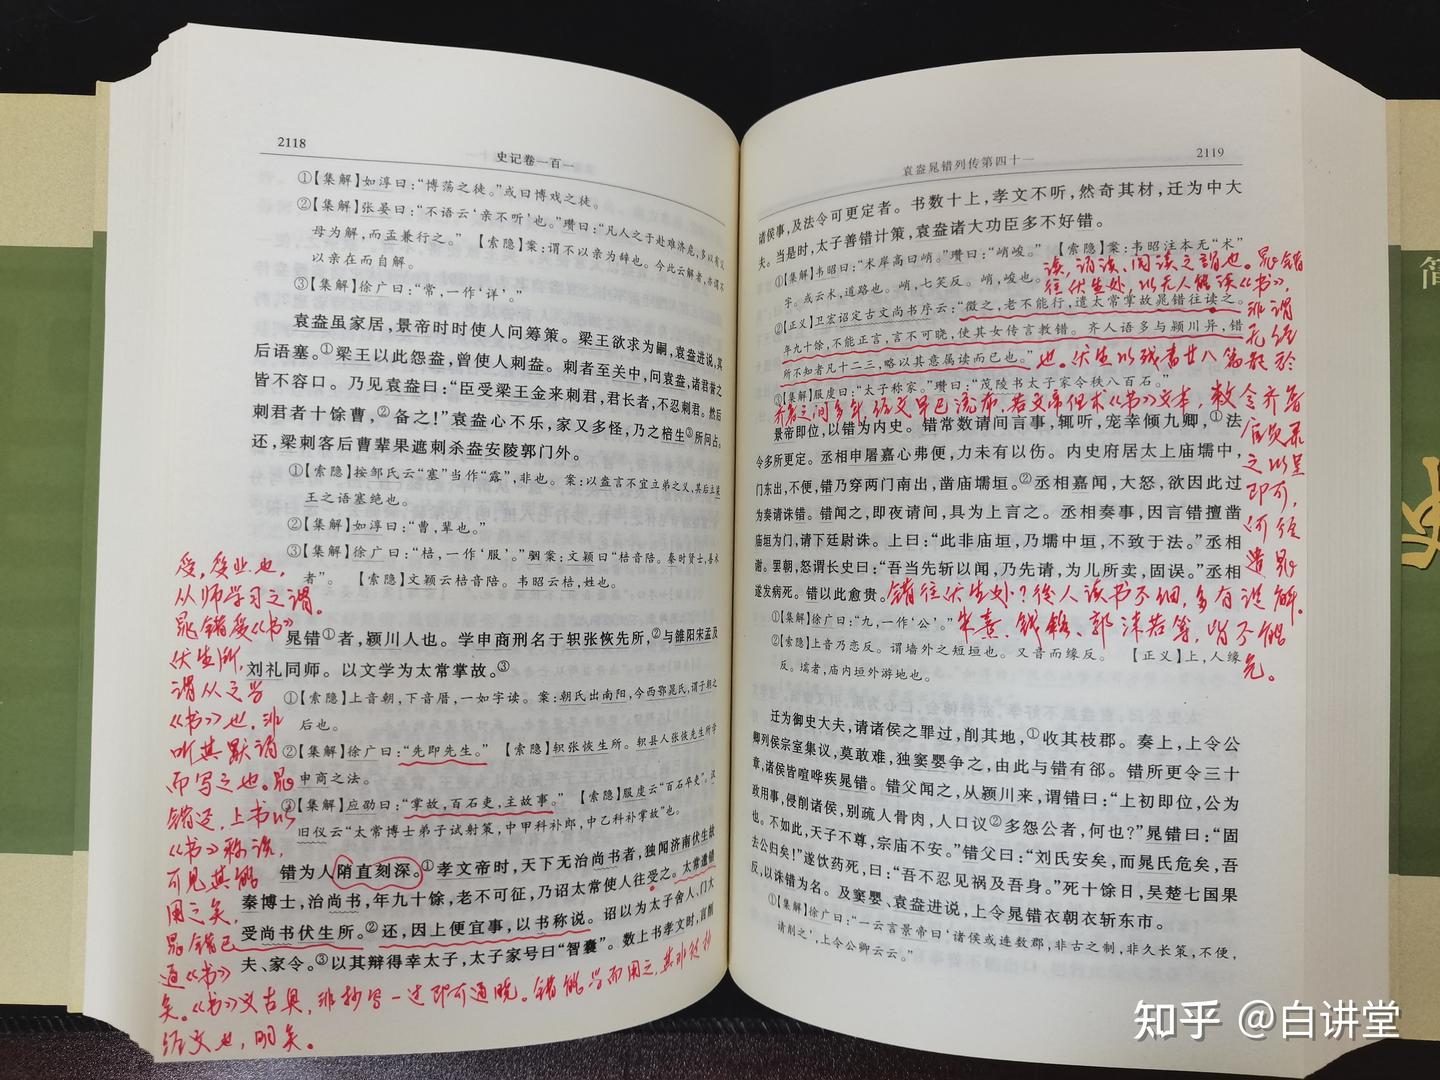 2118
史记卷一百一
①【集解】如淳曰:“博荡之徒。”或曰博戏之徒。
②【集解】张晏曰:“不语云‘亲不听’也。”瓒曰:“凡人之于赴难济危,多以有父
母为解,而孟兼行之。” 【索隐】案:谓不以亲为辞也。今此云解者,亦谓不
以亲在而自解。
③【集解】徐广曰:“常,一作‘详’。”
袁盎虽家居,景帝时时使人问筹策。梁王欲求为嗣,袁盎进说,其
后语塞。①梁王以此怨盎,曾使人刺盎。刺者至关中,问袁盎,诸君誉之
皆不容口。乃见袁盎曰:“臣受梁王金来刺君,君长者,不忍刺君。然后
刺君者十馀曹,②备之!”袁盎心不乐,家又多怪,乃之棓生③所问占。
还,梁刺客后曹辈果遮刺杀盎安陵郭门外。
①【索隐】按邹氏云“塞”当作“露”,非也。案:以盎言不宜立弟之义,其后立梁
王之语塞绝也。
②【集解】如淳曰:“曹,辈也。”
③【集解】徐广曰:“棓,一作‘服’。”骃案:文颖曰“棓音陪。秦时贤士,善术
者”。 【索隐】文颖云棓音陪。韦昭云棓,姓也。
晁错①者,颍川人也。学申商刑名于轵张恢先所,②与雒阳宋孟及
刘礼同师。以文学为太常掌故。③
①【索隐】上音朝,下音厝,一如字读。案:朝氏出南阳,今西鄂晁氏,谓子朝之
后也。
②【集解】徐广曰:“先即先生。” 【索隐】轵张恢生所。轵县人张恢先生所学
申商之法。
③【集解】应劭曰:“掌故,百石吏,主故事。” 【索隐】服虔云“百石卒吏”。汉
旧仪云“太常博士弟子试射策,中甲科补郎,中乙科补掌故”也。
错为人陗直刻深。①孝文帝时,天下无治尚书者,独闻济南伏生故
秦博士,治尚书,年九十馀,老不可征,乃诏太常使人往受之。太常遣错
受尚书伏生所。②还,因上便宜事,以书称说。诏以为太子舍人、门大
夫、家令。③以其辩得幸太子,太子家号曰“智囊”。数上书孝文时,言削
受,受业也,
从师学习之谓。
晁错受《书》
伏生所,
谓从之学
《书》也,非
听其默诵
而写之也。晁
错还,上书以
《书》称说,
可见其能
用之矣,
晁错已
通《书》
矣。《书》文古奥,非抄写一过即可通晓。错能学而用之,其非徒抄
经文也,明矣。
袁盎晁错列传第四十一
2119
诸侯事,及法令可更定者。书数十上,孝文不听,然奇其材,迁为中大
夫。当是时,太子善错计策,袁盎诸大功臣多不好错。
①【集解】韦昭曰:“术岸高曰峭。”瓒曰:“峭峻。” 【索隐】案:韦昭注本无“术”
字。或云术,道路也。峭,七笑反。峭,峻也。
②【正义】卫宏诏定古文尚书序云:“征之,老不能行,遣太常掌故晁错往读之。
年九十馀,不能正言,言不可晓,使其女传言教错。齐人语多与颍川异,错
所不知者凡十二三,略以其意属读而已也。”
③【集解】服虔曰:“太子称家。”瓒曰:“茂陵书太子家令秩八百石。”
景帝即位,以错为内史。错常数请间言事,辄听,宠幸倾九卿,①法
令多所更定。丞相申屠嘉心弗便,力未有以伤。内史府居太上庙壖中,
门东出,不便,错乃穿两门南出,凿庙壖垣。②丞相嘉闻,大怒,欲因此过
为奏请诛错。错闻之,即夜请间,具为上言之。丞相奏事,因言错擅凿
庙垣为门,请下廷尉诛。上曰:“此非庙垣,乃壖中垣,不致于法。”丞相
谢。罢朝,怒谓长史曰:“吾当先斩以闻,乃先请,为儿所卖,固误。”丞相
遂发病死。错以此愈贵。
①【集解】徐广曰:“九,一作‘公’。”
②【索隐】上音乃恋反。谓墙外之短垣也。又音而缘反。 【正义】上,人缘
反。壖者,庙内垣外游地也。
迁为御史大夫,请诸侯之罪过,削其地,①收其枝郡。奏上,上令公
卿列侯宗室集议,莫敢难,独窦婴争之,由此与错有郤。错所更令三十
章,诸侯皆喧哗疾晁错。错父闻之,从颍川来,谓错曰:“上初即位,公为
政用事,侵削诸侯,别疏人骨肉,人口议②多怨公者,何也?”晁错曰:“固
也。不如此,天子不尊,宗庙不安。”错父曰:“刘氏安矣,而晁氏危矣,吾
去公归矣!”遂饮药死,曰:“吾不忍见祸及吾身。”死十馀日,吴楚七国果
反,以诛错为名。及窦婴、袁盎进说,上令晁错衣朝衣斩东市。
①【集解】徐广曰:“一云言景帝曰‘诸侯或连数郡,非古之制,非久长策,不便,
请削之’,上令公卿云云。”
读,诵读,阅读之谓也。晁错
往伏生处,以无人能读《书》,
非谓
无经
也。伏生以残书廿八篇教于
齐鲁之间多年,经文早已流布,若文帝但求《书》文本,敕令齐鲁
官员录
之以呈
即可,
何须
遣晁
错往伏生处?后人读书不细,多有误解。
朱熹、钱穆、郭沫若等,皆不能
免。
知乎 @白讲堂